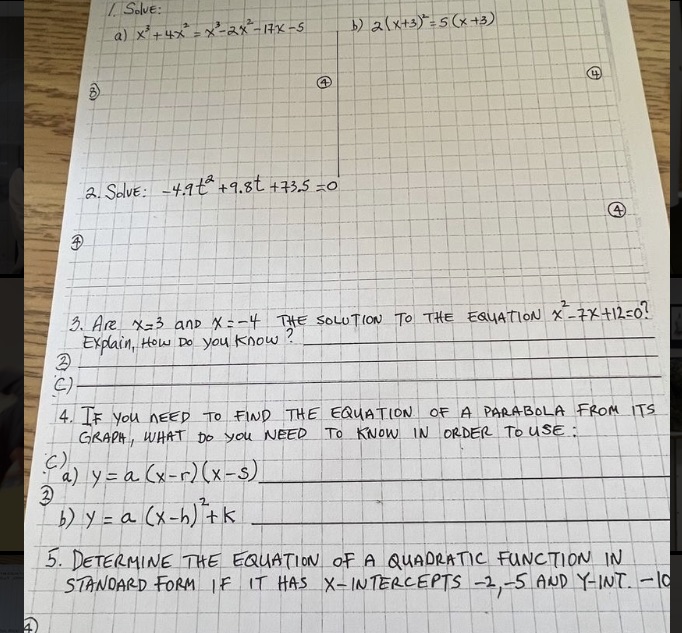 1. Solve:
a) x³ + 4x² = x³ - 2x² - 17x - 5
b) 2(x+3)² = 5(x+3)
③
④
④
2. Solve: -4.9t² + 9.8t + 73.5 = 0
④
④
3. Are x=3 and x=-4 THE SOLUTION TO THE EQUATION x² - 7x + 12 = 0?
Explain, How Do you Know?
②
C)
4. IF you NEED TO FIND THE EQUATION OF A PARABOLA FROM ITS
GRAPH, WHAT DO you NEED TO KNOW IN ORDER TO USE:
C)
a) y = a (x-r)(x-s)
②
b) y = a (x-h)² + k
5. DETERMINE THE EQUATION OF A QUADRATIC FUNCTION IN
STANDARD FORM IF IT HAS X-INTERCEPTS -2, -5 AND Y-INT. -10
④